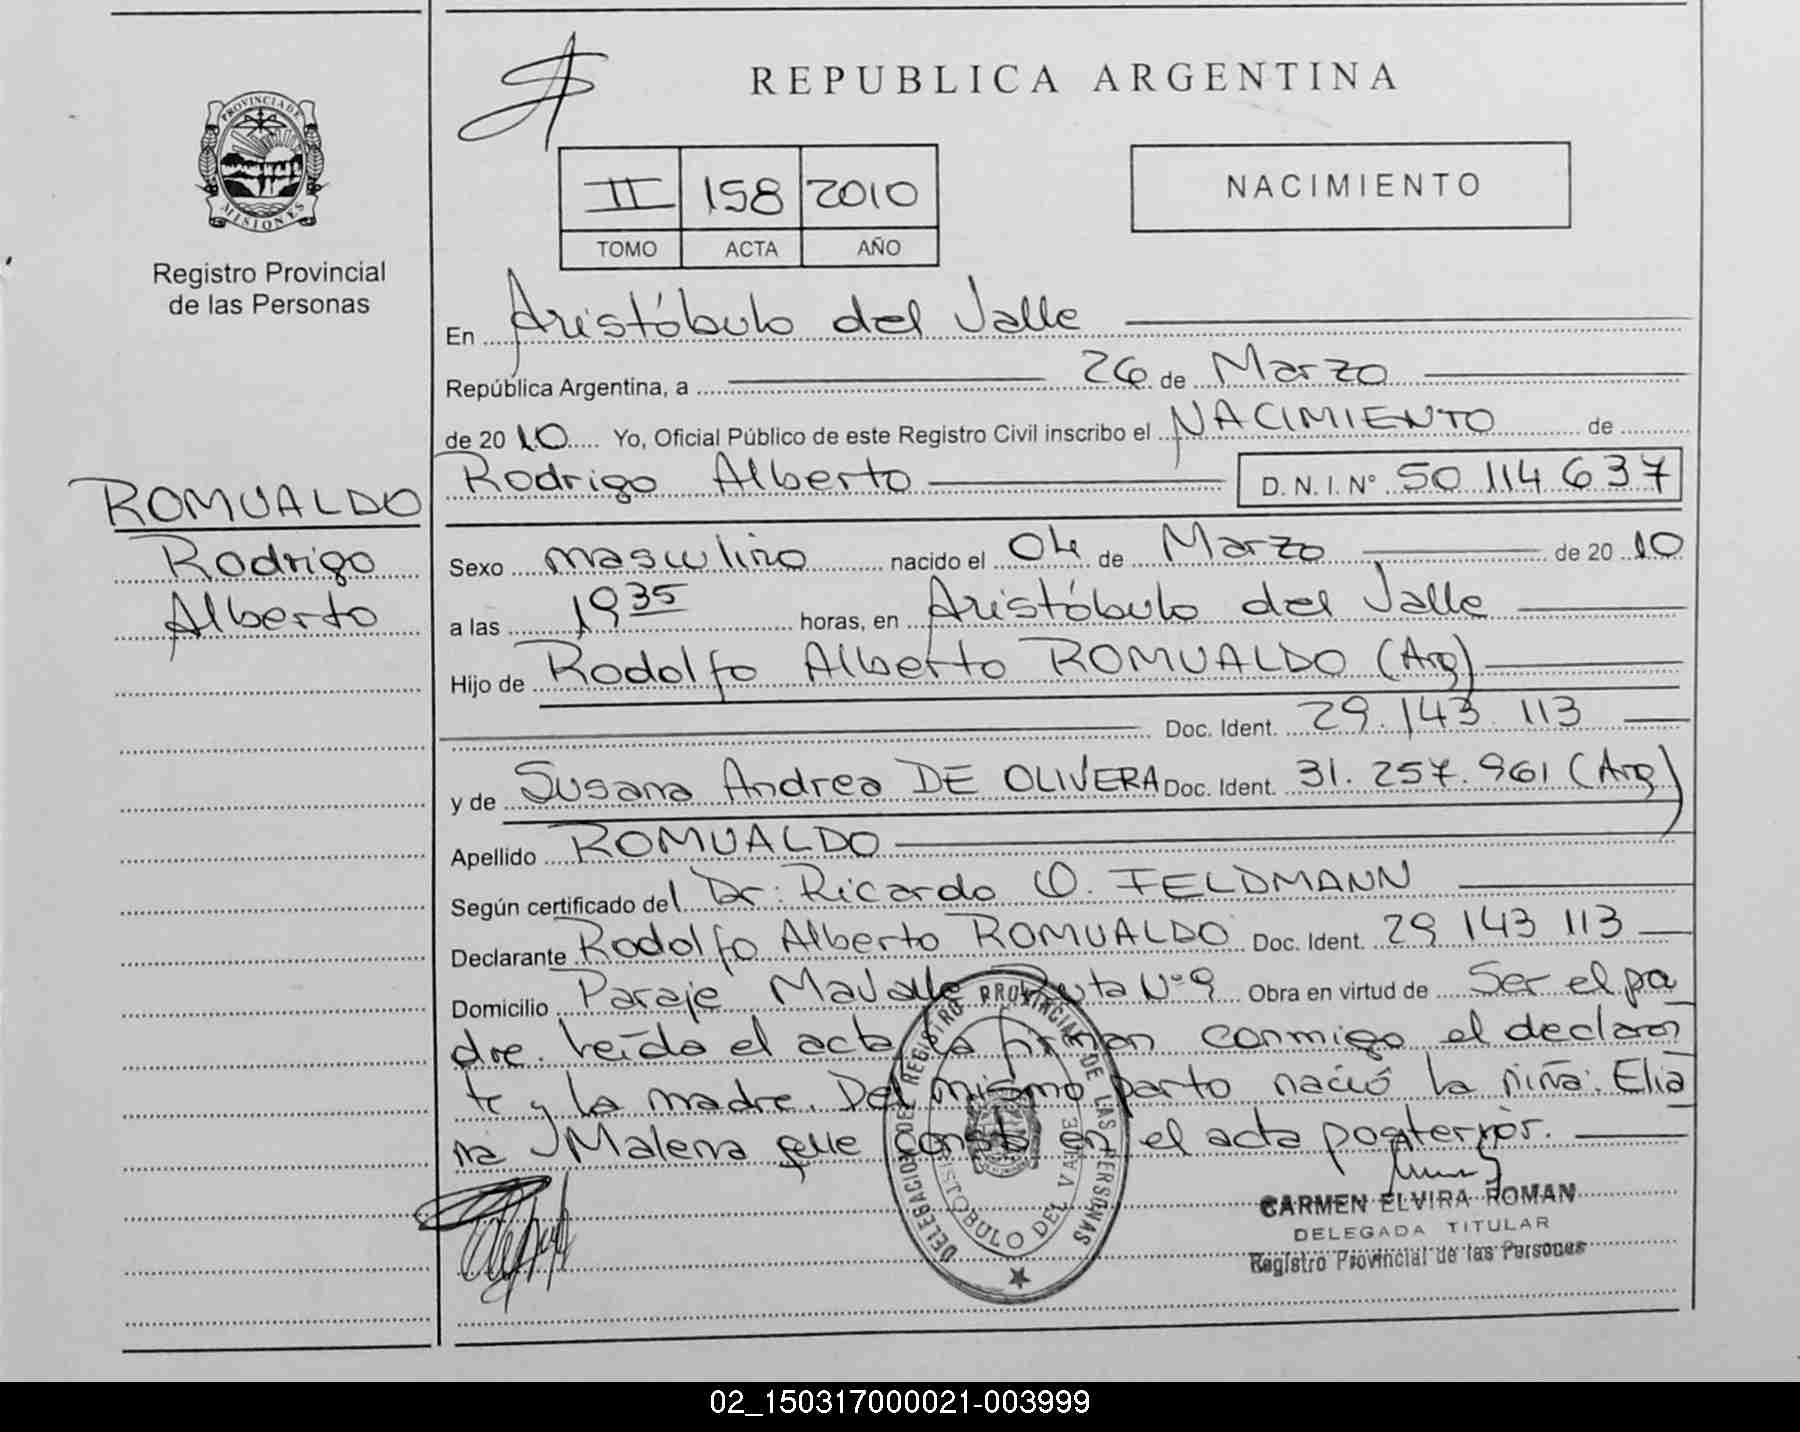 REPUBLICA ARGENTINA
PROVINCIA DE
MISIONES
Registro Provincial
de las Personas
II 158 2010
TOMO ACTA AÑO
NACIMIENTO
En Aristóbulo del Valle
República Argentina, a 26 de Marzo
de 2010 Yo, Oficial Público de este Registro Civil inscribo el NACIMIENTO de
Rodrigo Alberto D.N.I. Nº 50 114 637
ROMUALDO
Rodrigo
Alberto
Sexo masculino nacido el 04 de Marzo de 2010
a las 19 35 horas, en Aristóbulo del Valle
Hijo de Rodolfo Alberto ROMUALDO (Arg)
Doc. Ident. 29.143.113
y de Susana Andrea DE OLIVERA Doc. Ident. 31.257.961 (Arg)
Apellido ROMUALDO
Según certificado del Dr: Ricardo O. FELDMANN
Declarante Rodolfo Alberto ROMUALDO Doc. Ident. 29 143 113
Domicilio Paraje Mavalle Ruta Nº 9 Obra en virtud de Ser el pa
dre. Leída el acta la firman conmigo el declaran
te y la madre. Del mismo parto nació la niña: Elia
na Malena que consta en el acta posterior.
DELEGACION DEL REGISTRO PROVINCIAL DE LAS PERSONAS
ARISTOBULO DEL VALLE
CARMEN ELVIRA ROMAN
DELEGADA TITULAR
Registro Provincial de las Personas
02_150317000021-003999